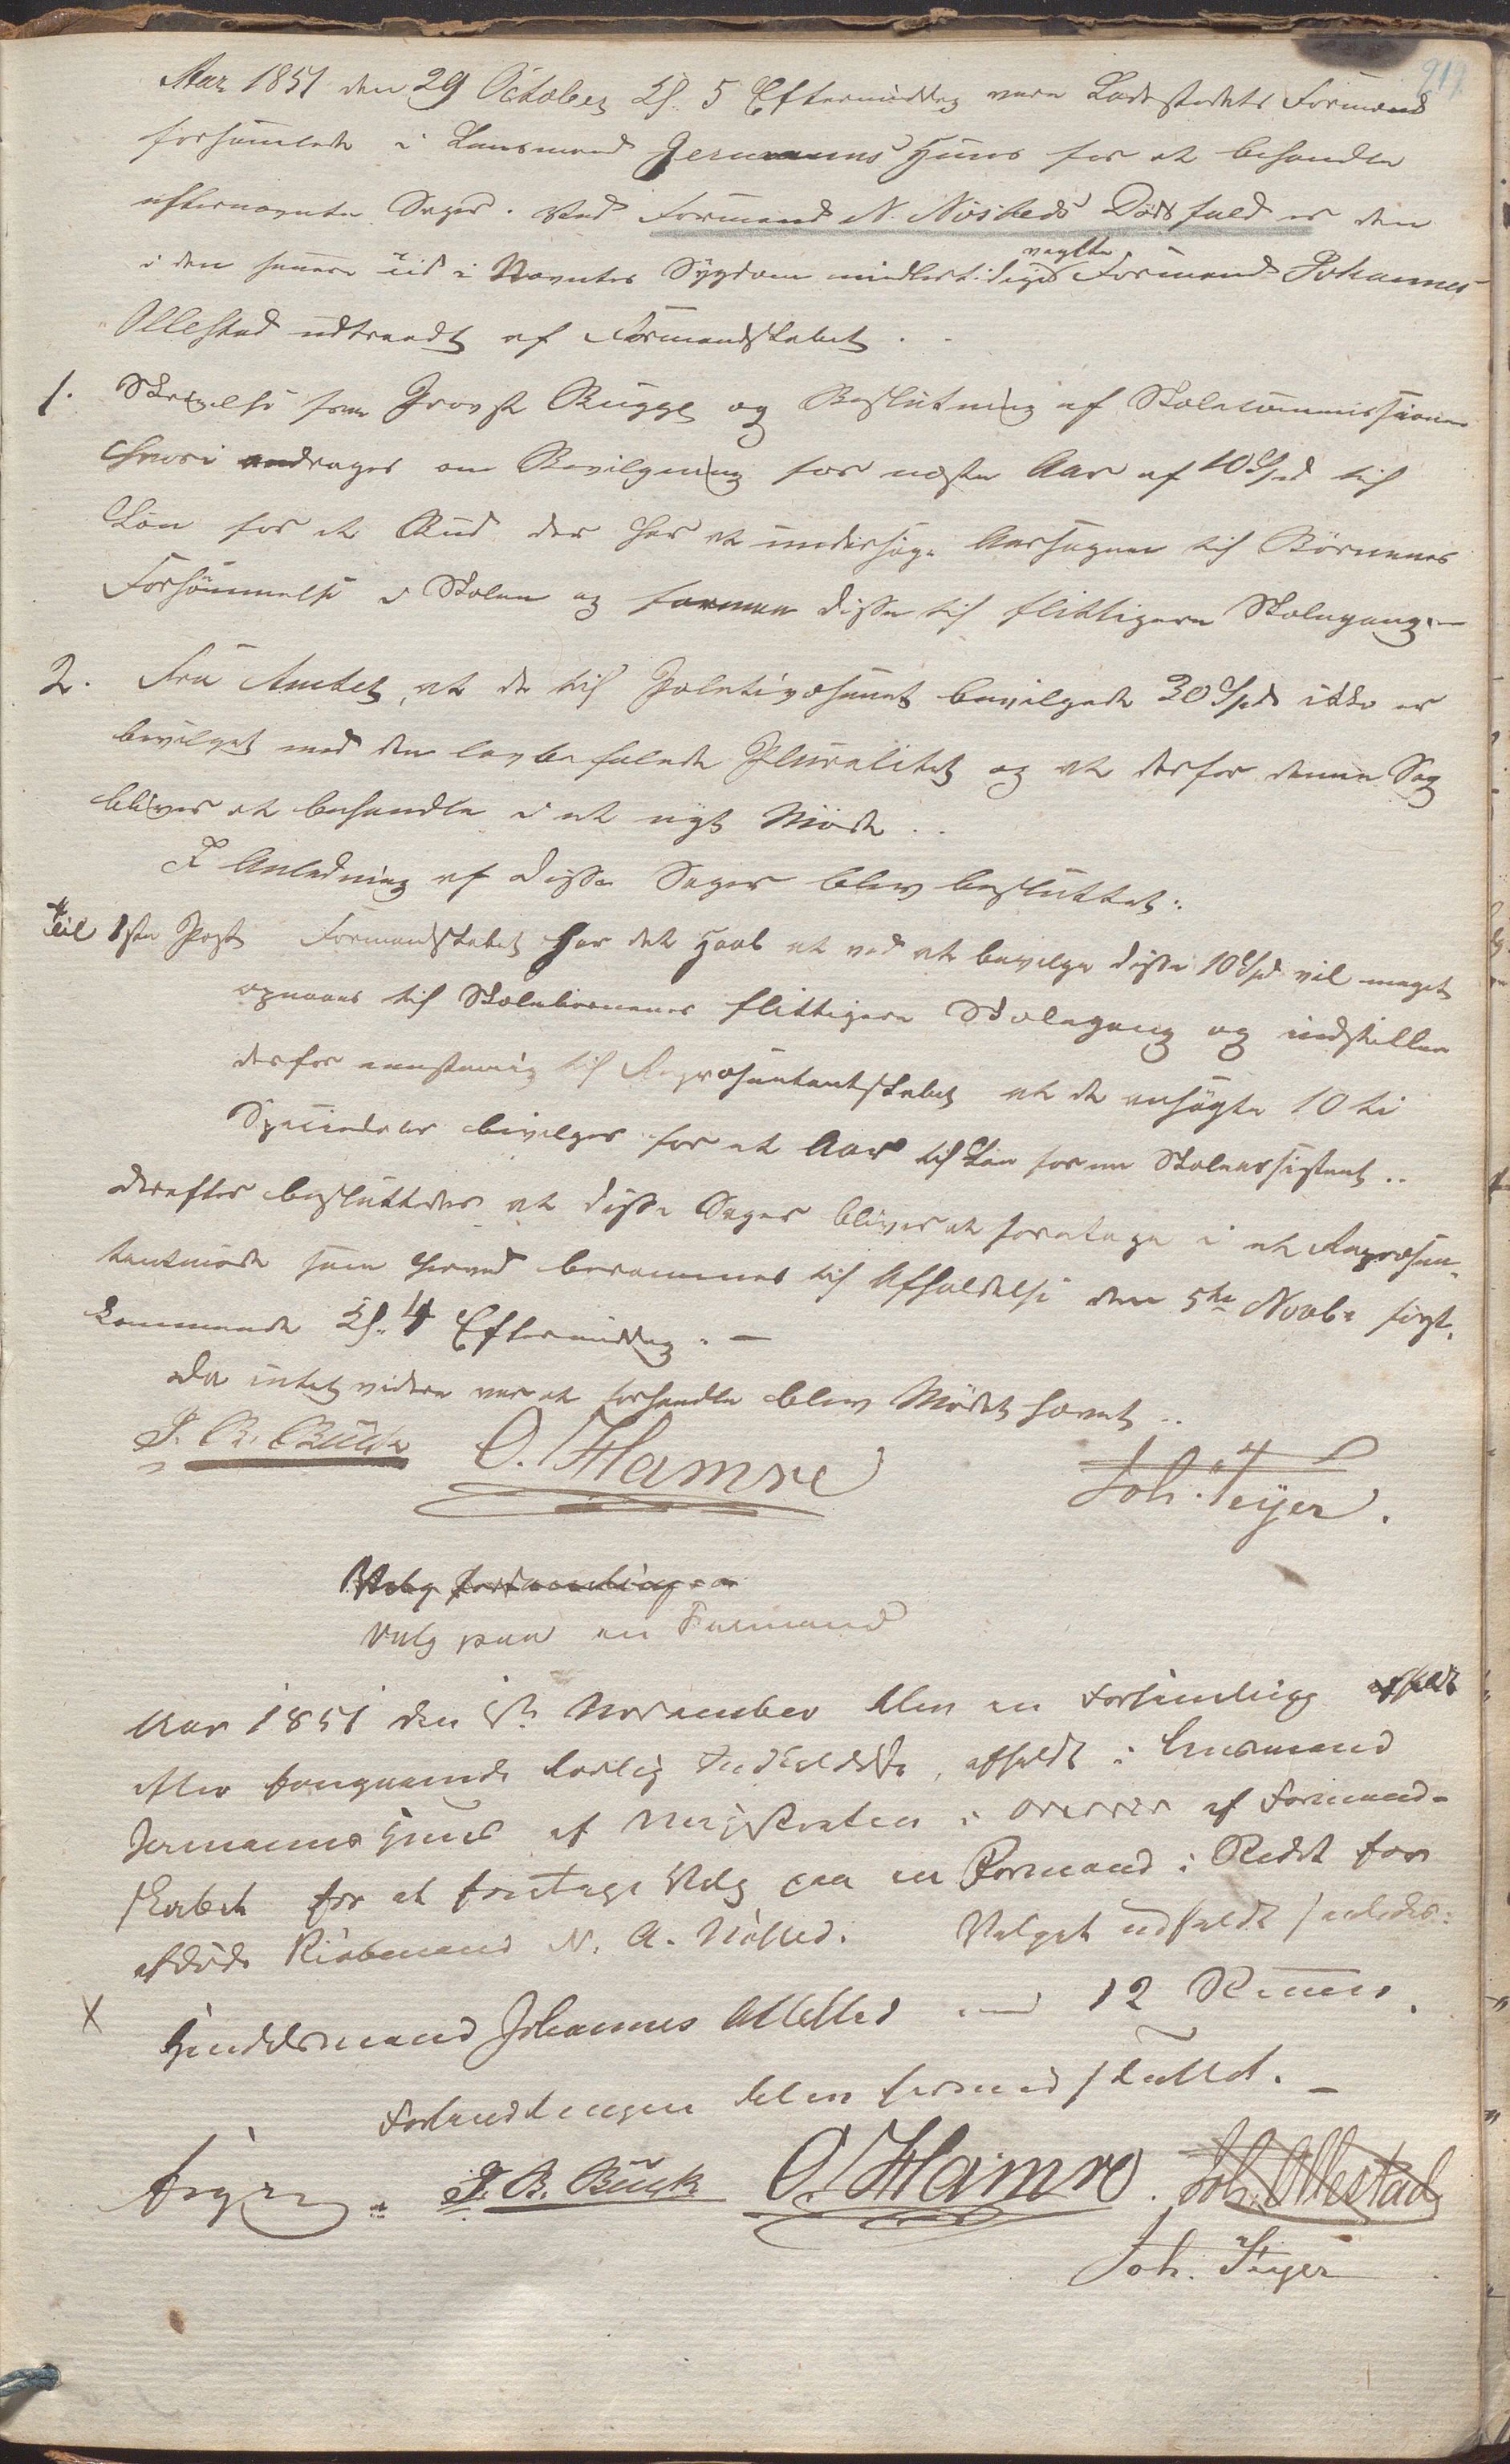 217
Aar 1851 den 29 October Kl. 5 Eftermiddag vare Ladestedets Formænd
forsamlede i Lensmand Jermanns Huus for at behandle
efternævnte Sager. Ved Formand N. Nøsteds Dødsfald er den
i den senere Tid i Nævntes Sygdom midlertidige valgte Formand Johannes
Ollestad udtraadt af Formandskabet.
1. Skrivelse fra Provst Bugge og Beslutning af Skolecommissionen
hvori andrages om Bevilgning for næste Aar af 10 Spd til
Løn for et Bud der har at undersøge Aarsagen til Børnenes
Forsømmelse i Skolen og disse til flittigere Skolegang.
2. Fra Amtet, at de til Politivæsenet bevilgede 30 Spd ikke er
bevilget med den lovbefalede Pluralitet og at derfor denne Sag
bliver at behandle i et nyt Møde.
I Anledning af disse Sager blev besluttet:
Til 1ste Post Formandskabet har det Haab at ved at bevilge disse 10 Spd vil meget
opnaaes til Skolebørnenes flittigere Skolegang og indstiller
derfor eenstemig til Repræsentantskabet at de ansøgte 10 ti
Speciedaler bevilges for et Aar til Løn for en Skoleassistent..
Derefter besluttedes at disse Sager bliver at foretage i et Repræsen-
tantmøde som herved berammes til Afholdelse den 5te Novbr førstk.
kommende Kl. 4 Eftermiddag. -
Da intet videre var at forhandle blev Mødet hævet..
J. B. Buck O. Hamre Joh. Feyer.
Valg forsamlingen
Valg paa en Formand
Aar 1851 den November blev en Forsamling afholdt
efter foregaaende lovlig Indkaldelse, afholdt i Lensmand
Jermanns Huus af Magistraten i Overvær af Formand-
skabet for at foretage Valg paa en Formand i Stedet for
afdøde Kiøbmand N. A. Nøsted. Valget udfaldt saaledes:
X Handelsmand Johannes Ollestad med 12 Stemmer.
Forhandlingen blev hermed sluttet. -
J. B. Buck O. Hamre. Joh. Ollestad
Joh. Feyer